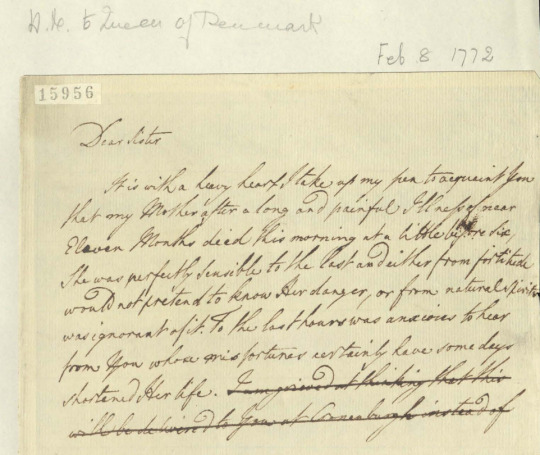 to Queen of Denmark
Feb 8 1772
15956
Dear Sister
It is with a heavy heart I take up my pen to acquaint You
that my Mother after a long and painful Illness of near
Eleven Months died this morning at a little before six,
She was perfectly sensible to the last and either from fortitude
would not pretend to know Her danger, or from natural spirits
was ignorant of it. To the last hours was anxious to hear
from You whose misfortunes certainly have some days
shortened Her life. I am grieved at thinking that this
will be deliver'd to You at Cronenburgh instead of